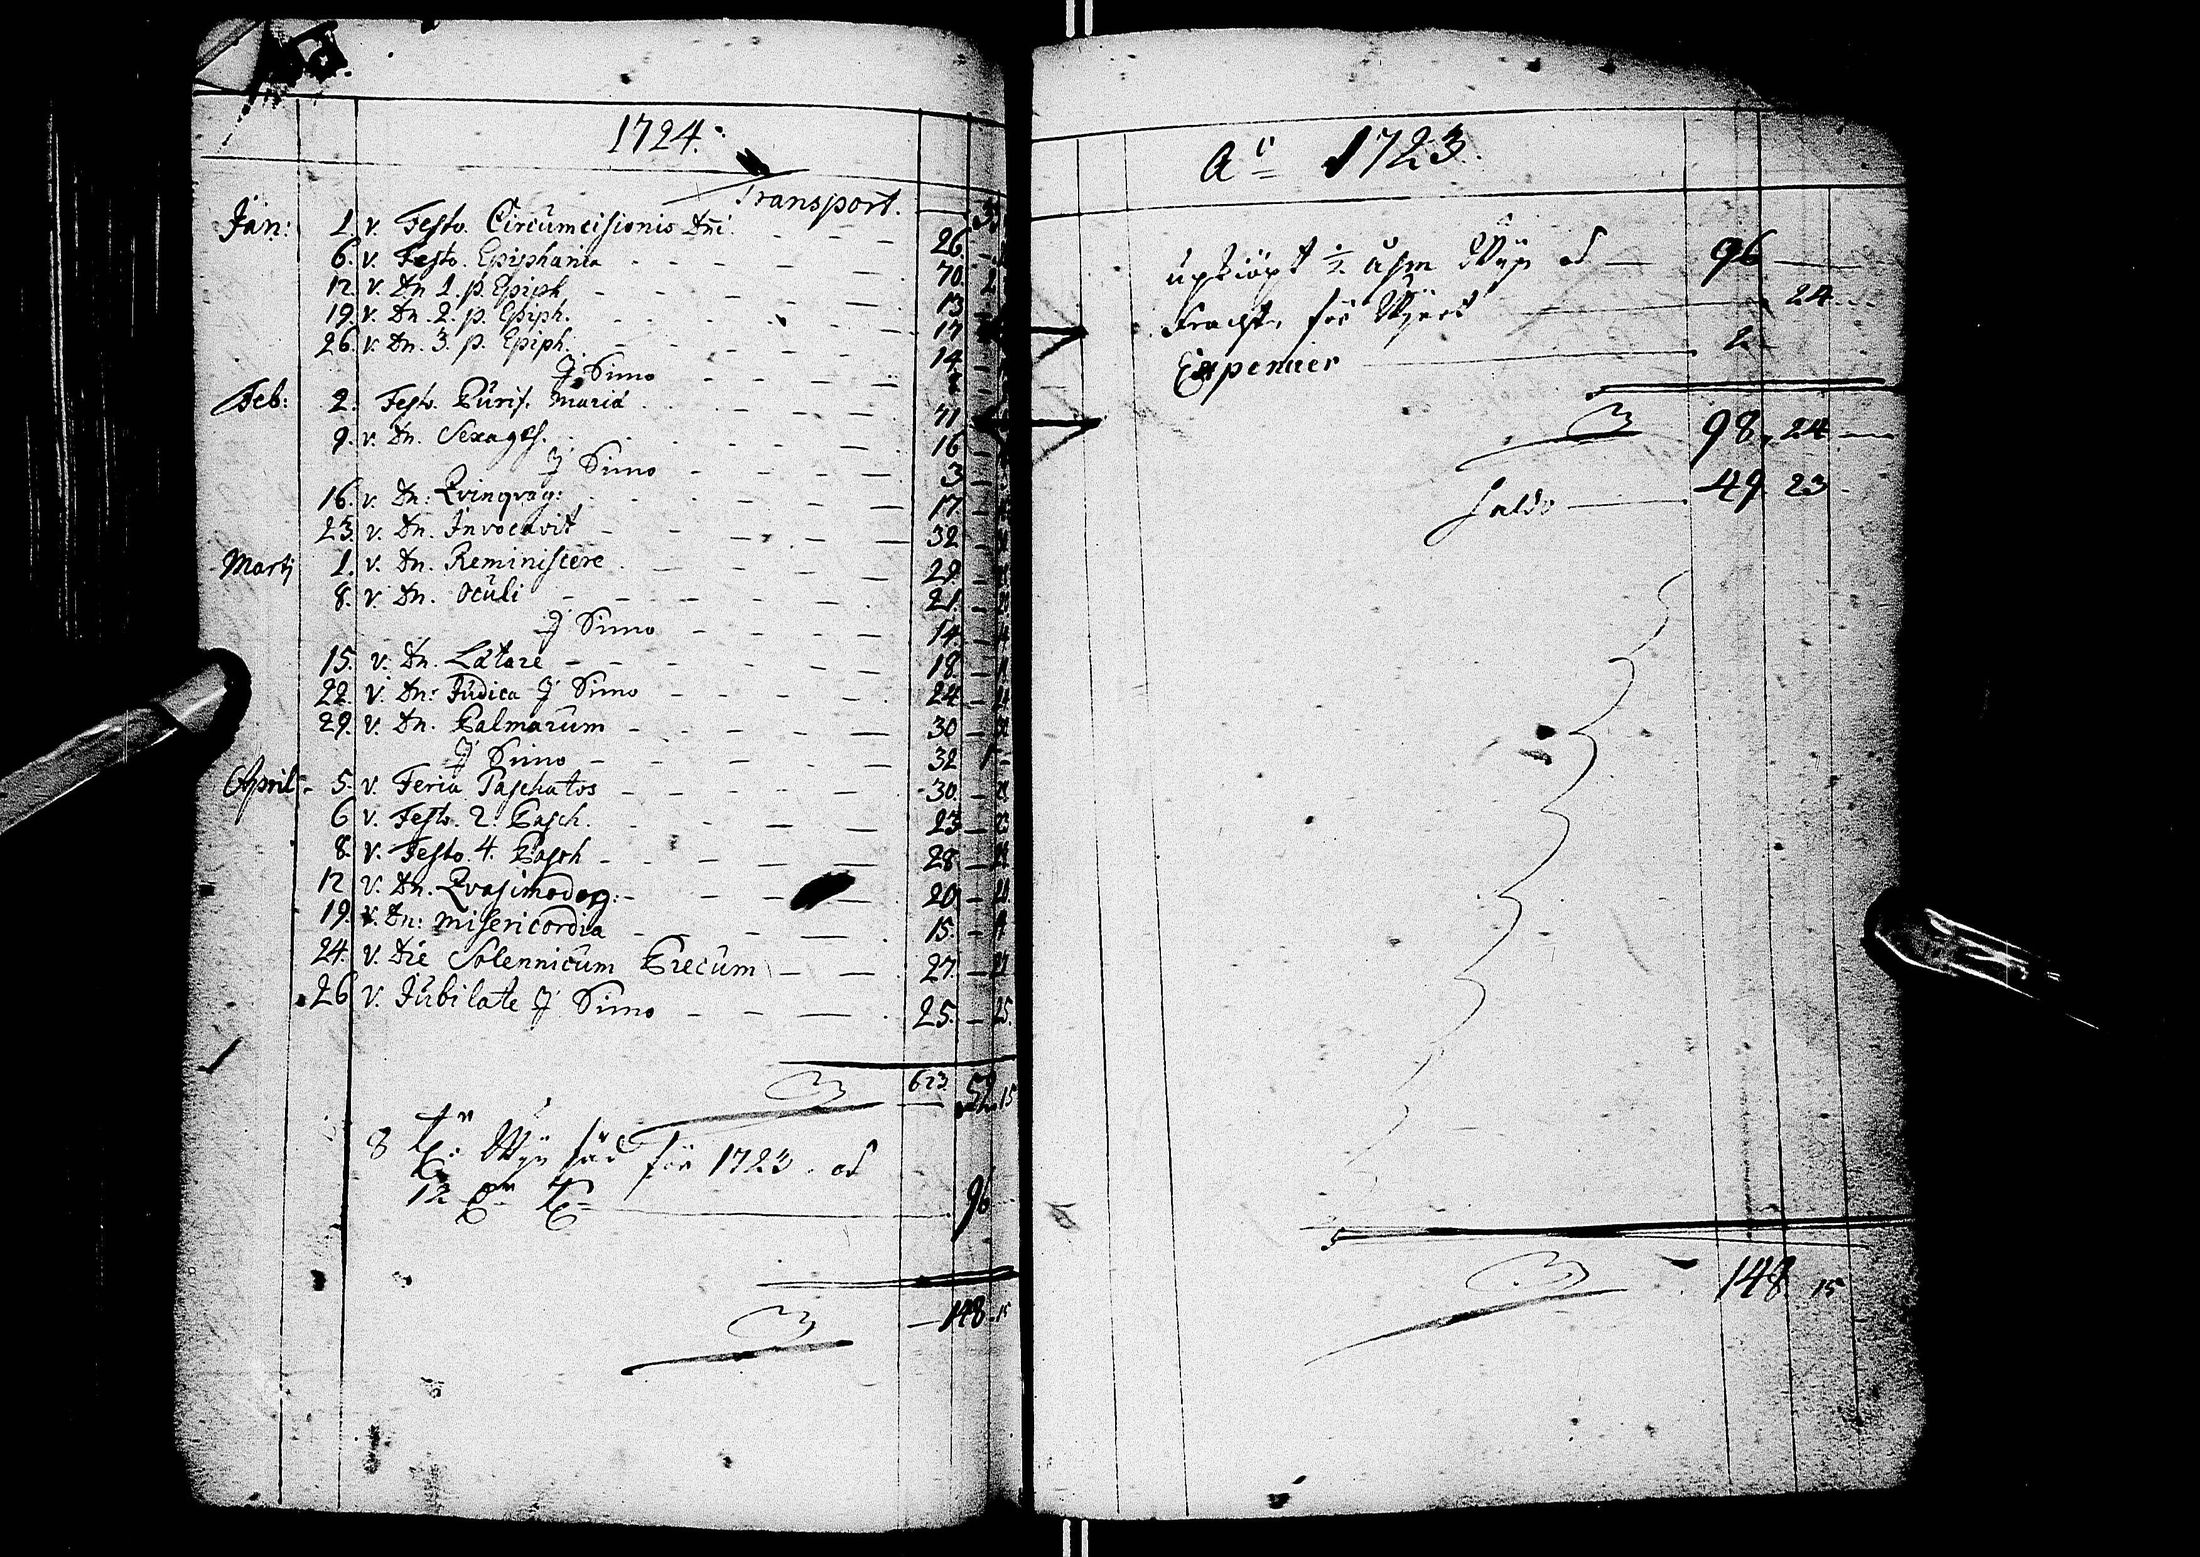 1724.
Transport.
Jan: 1. v. Festo. Circumcisionis Dni. 26
6. v. Festo. Epiphania 70.
12. v. Dn 1. p. Epiph 13
19. v. Dn. 2. p. Epiph. 17
26. v. Dn. 3. p. Epiph. 14
J Simo
Feb: 2. Festo. Purif. Mariæ 71
9. v. Dn. Sexages. 16
J Simo 3
16. v. Dn: Qvinqvag: 17
23. v. Dn. Invocavit 32
Martj 1. v. Dn. Reminiscere 29.
8. v. Dn. Oculi 21.
J Simo 14.
15. v. Dn. Lætare 18.
22. v. Dn: Judica J Simo 24
29. v. Dn. Palmarum 30
J Simo 32 1
April 5. v. Feria Paschatos 30.
6 v. Festo. 2. Pasch. 23 23
8. v. Festo. 4. Pasch 28
12 v. Dn. Qvasimodog: 20
19. v. Dn: Misericordia 15.
24. v. Die Solennicum Precum 27. 27
26 v. Jubilate J Simo 25. 25.
623. 52. 15
8 Wijn för 1723. at
12 96
148. 15
Ao 1723.
upkiöpt ½ åhm Wijn at 96
Fracht, för Wijnet 24
Expenser 2
98. 24
Saldo 49 23
148 15